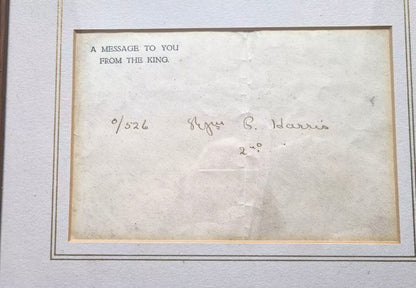 A MESSAGE TO YOU
FROM THE KING.
0/526 C. Harris
2nd